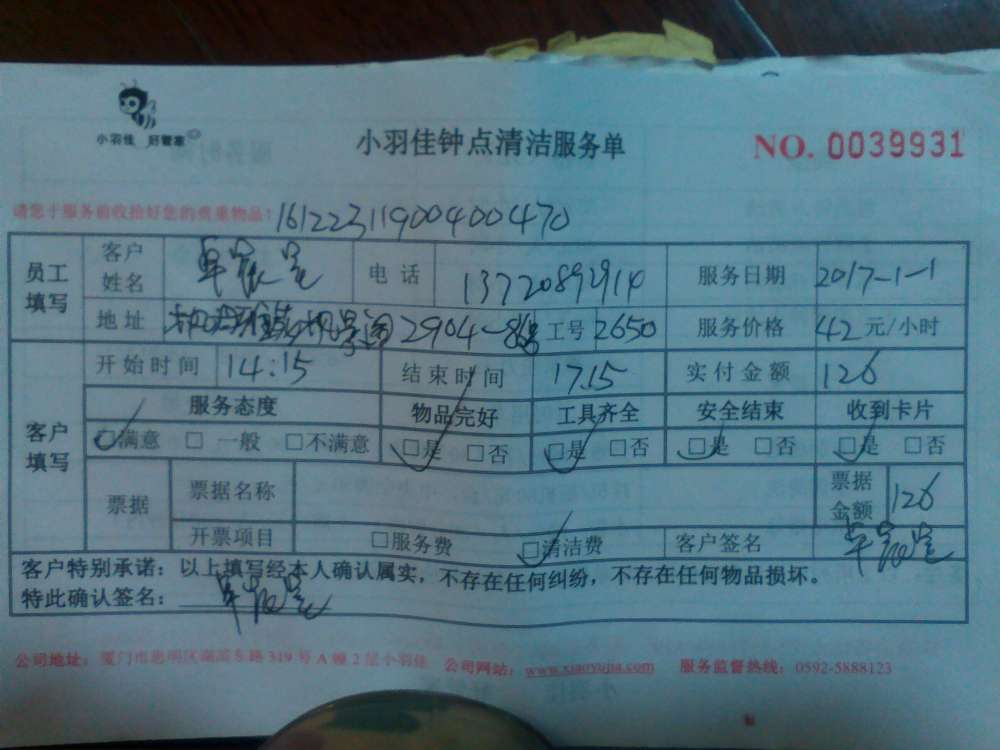 小羽佳 好管家
小羽佳钟点清洁服务单
NO. 0039931
请您于服务前收拾好您的贵重物品!
16122311900400470
员工填写 客户姓名 电话 13720892914 服务日期 2017-1-1
地址 2904 工号 2650 服务价格 42 元/小时
客户填写 开始时间 14:15 结束时间 17.15 实付金额 126
服务态度 物品完好 工具齐全 安全结束 收到卡片
□满意 □一般 □不满意 □是 □否 □是 □否 □是 □否 □是 □否
票据 票据名称 票据金额 126
开票项目 □服务费 □清洁费 客户签名
客户特别承诺:以上填写经本人确认属实,不存在任何纠纷,不存在任何物品损坏。
特此确认签名:
公司地址:厦门市思明区湖滨东路319号A幢2层小羽佳 公司网站:www.xiaoyujia.com 服务监督热线:0592-5888123